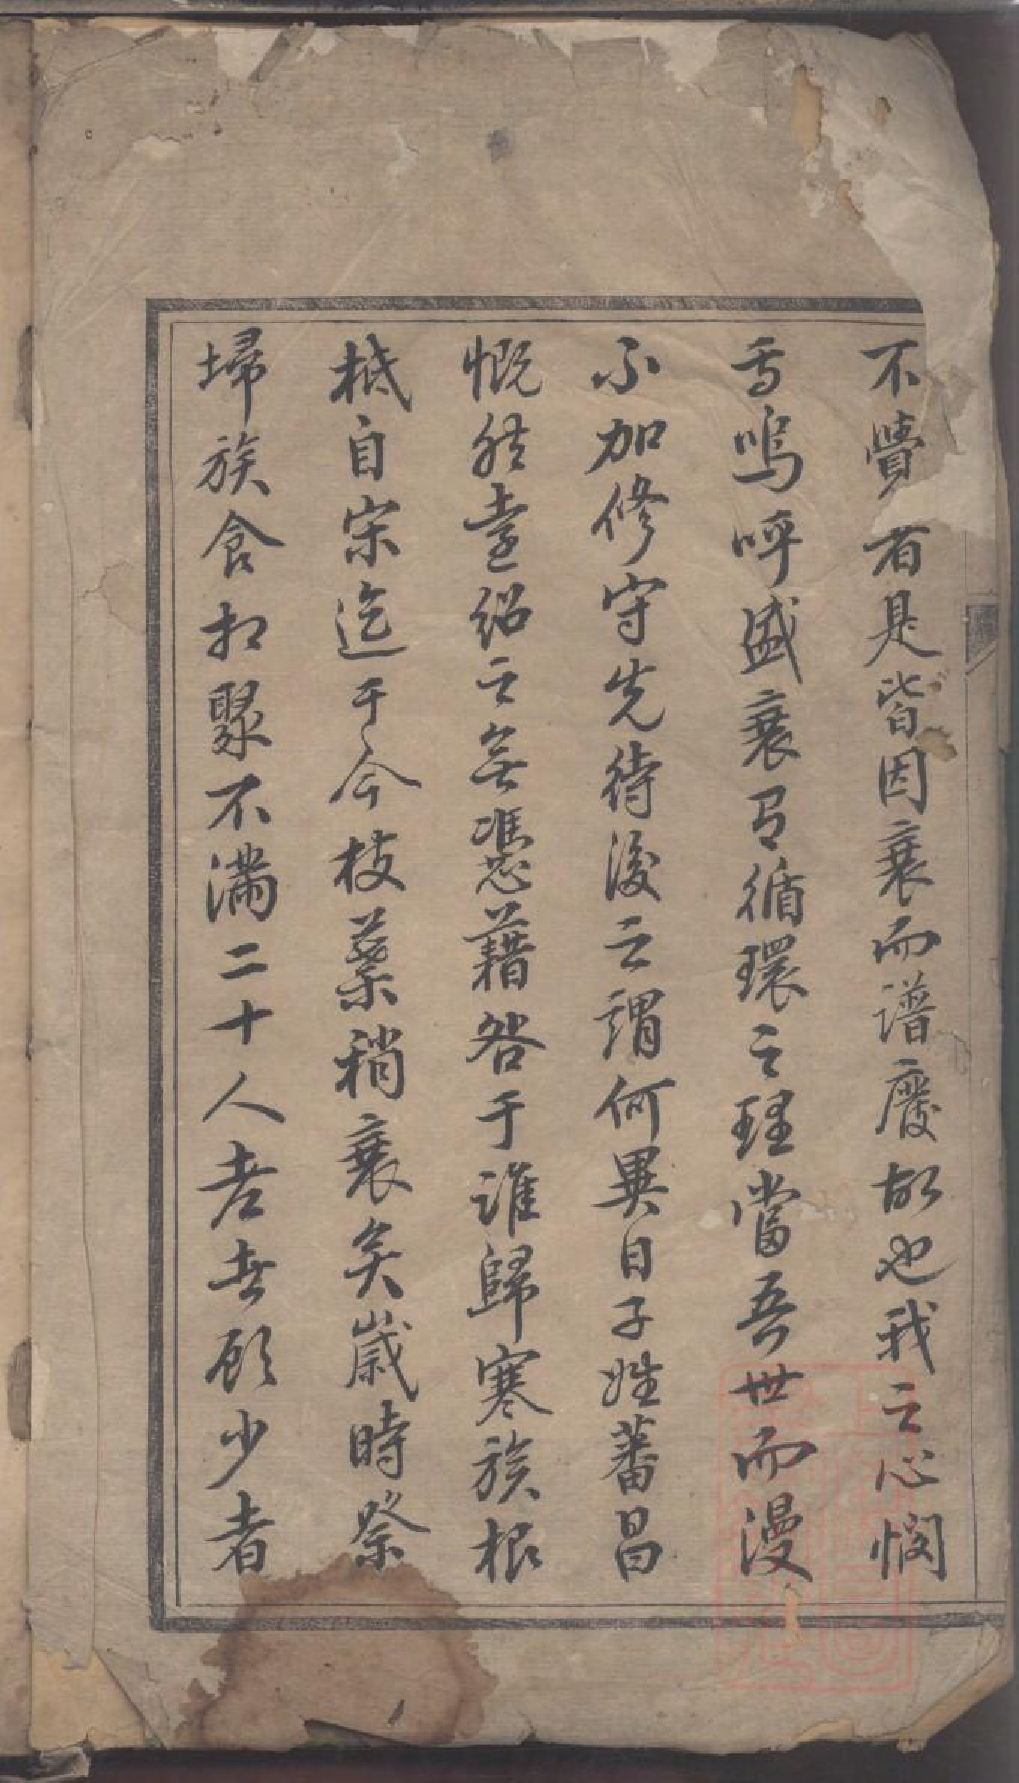 不覺者是皆因衰而譜廢故也我之心憫
焉嗚呼盛衰乃循環之理當吾世而漫
不加修守先待後之謂何異日子姓蕃昌
慨然臺紹之無憑藉咎于誰歸寒族根
柢自宗迄于今枝葉稍衰矣歲時祭
埽族食相聚不滿二十人老者頹少者